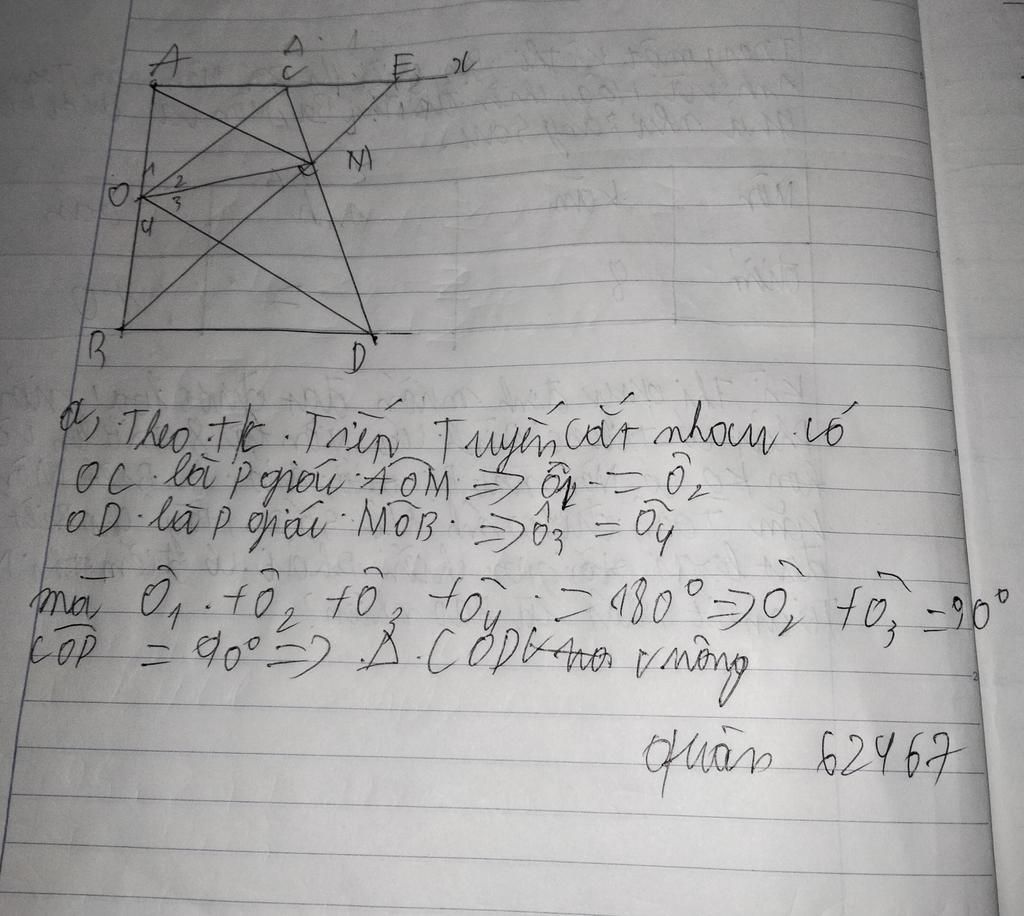 A C E x
M
O 1 2 3 4
B D
a, Theo t/c Tiếp Tuyến cắt nhau có
OC là p giác AOM => Ô1 = Ô2
OD là p giác MOB => Ô3 = Ô4
mà Ô1 + Ô2 + Ô3 + Ô4 = 180° => Ô2 + Ô3 = 90°
COD = 90° => Δ COD vuông
quân 62467